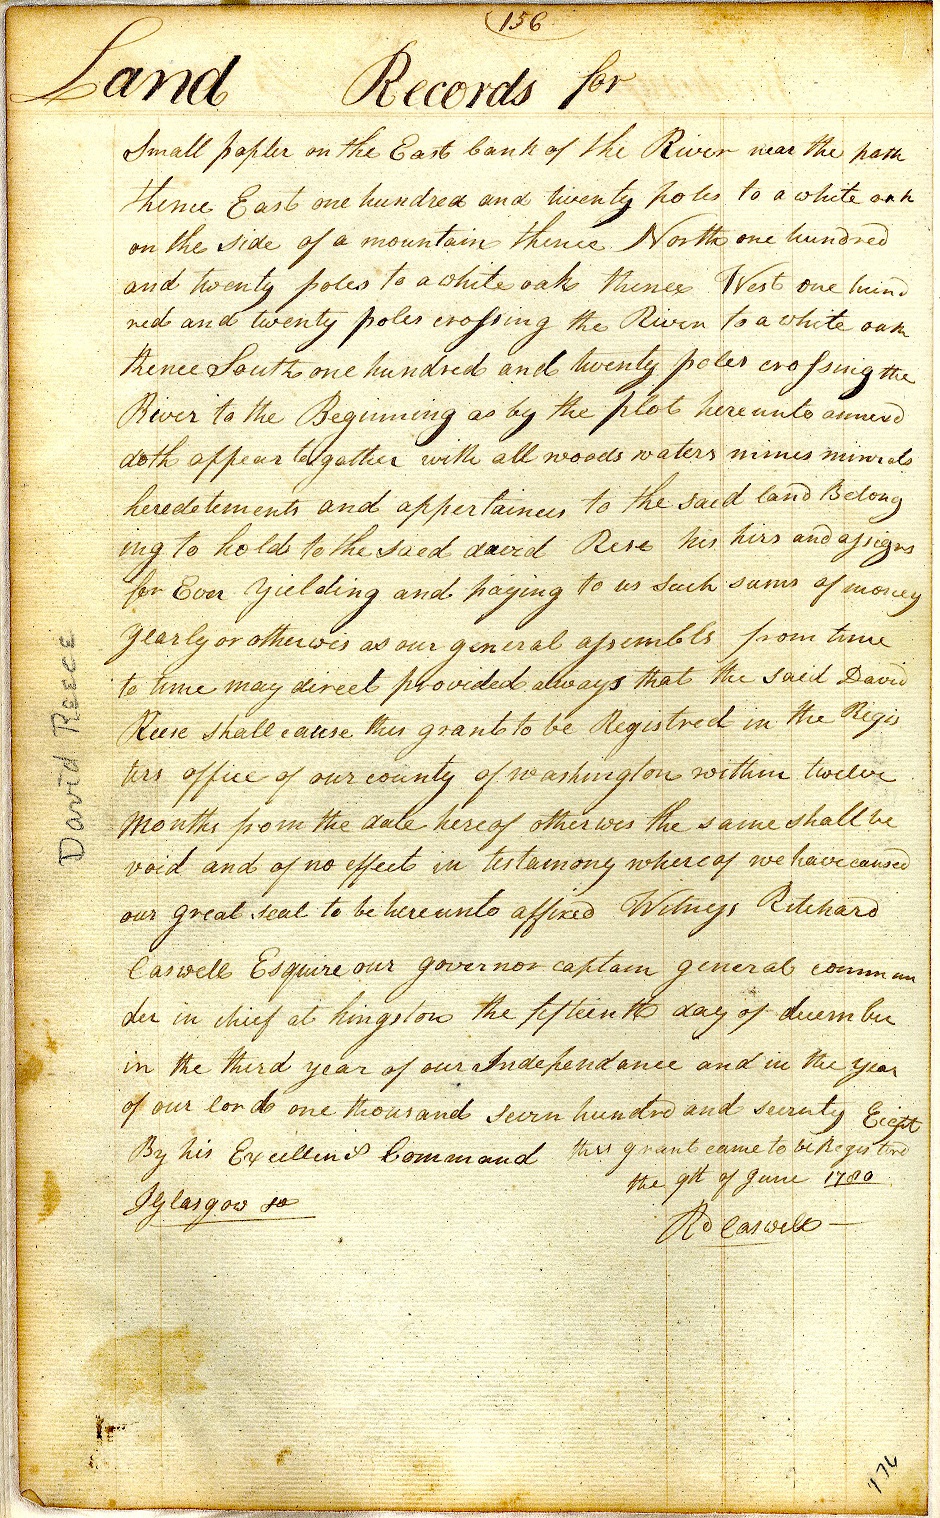 156
Land Records for
Small popler on the East bank of the River near the path
thence East one hundred and twenty poles to a white oak
on the side of a mountain thence North one hundred
and twenty poles to a white oak thence West one hund
red and twenty poles crossing the River to a white oak
thence South one hundred and twenty poles crossing the
River to the Beginning as by the plot hereunto annexd
doth appear togather with all woods waters mines minerals
heredetements and appertainces to the said land Belong
ing to hold to the saed david Rese his hirs and assigns
for Ever yielding and paying to us such sums of money
yearly or otherwis as our general assembls from time
to time may direct provided always that the said David
Reese shall cause this grant to be Registred in the Regis
ters office of our county of washington within twelve
months from the date hereof otherwes the same shall be
void and of no effect in testamony whereof we have caused
our great seal to be hereunto affixed Witness Ritchard
Caswell Esquire our governor captain general comman
der in chief at kingston the fifteenth day of december
in the third year of our Independance and in the year
of our lord one thousand seven hundrd and seventy Eight
By his Excellens Command this grant came to be Registerd
the 9th of June 1780
J Glasgow
Rd Caswell
David Reece
176